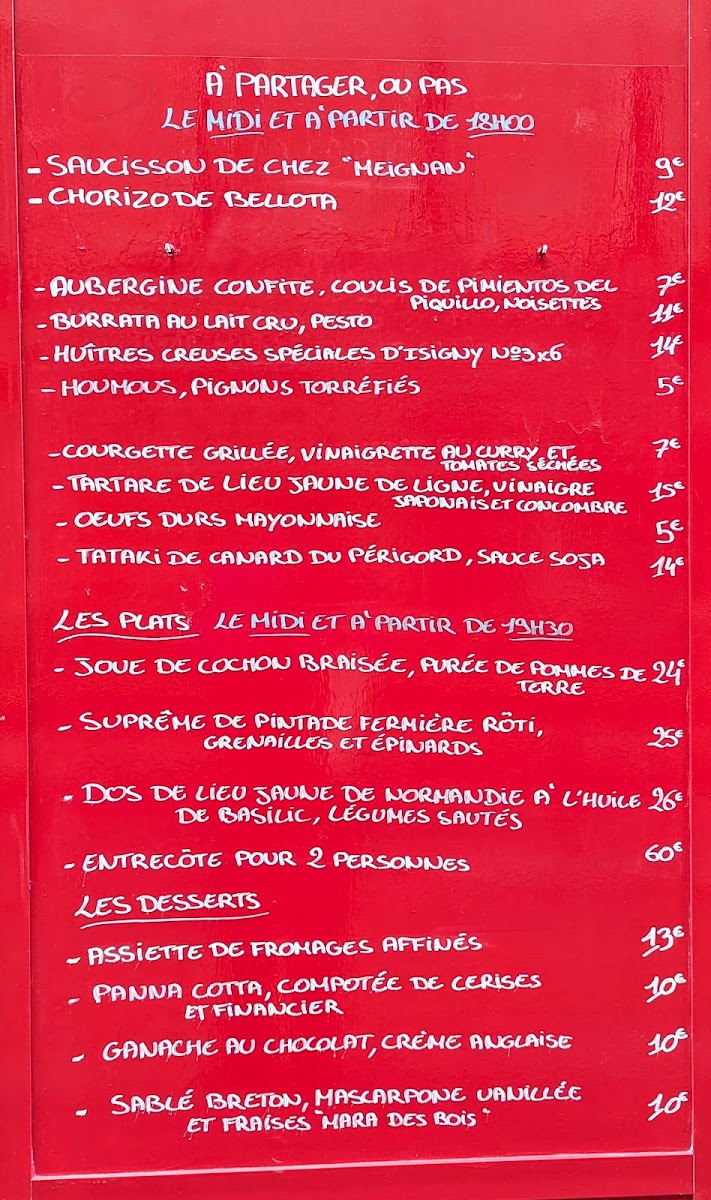 À PARTAGER, OU PAS
LE MIDI ET À PARTIR DE 18H00
- SAUCISSON DE CHEZ "MEIGNAN" 9€
- CHORIZO DE BELLOTA 12€
- AUBERGINE CONFITE, COULIS DE PIMIENTOS DEL 7€
PIQUILLO, NOISETTES
- BURRATA AU LAIT CRU, PESTO 11€
- HUÎTRES CREUSES SPÉCIALES D'ISIGNY Nº3x6 14€
- HOUMOUS, PIGNONS TORRÉFIÉS 5€
- COURGETTE GRILLÉE, VINAIGRETTE AU CURRY ET 7€
TOMATES SÉCHÉES
- TARTARE DE LIEU JAUNE DE LIGNE, VINAIGRE 15€
JAPONAIS ET CONCOMBRE
- OEUFS DURS MAYONNAISE 5€
- TATAKI DE CANARD DU PÉRIGORD, SAUCE SOJA 14€
LES PLATS LE MIDI ET À PARTIR DE 19H30
- JOUE DE COCHON BRAISÉE, PURÉE DE POMMES DE 24€
TERRE
- SUPRÊME DE PINTADE FERMIÈRE RÔTI,
GRENAILLES ET ÉPINARDS 25€
- DOS DE LIEU JAUNE DE NORMANDIE À L'HUILE 26€
DE BASILIC, LÉGUMES SAUTÉS
- ENTRECÔTE POUR 2 PERSONNES 60€
LES DESSERTS
- ASSIETTE DE FROMAGES AFFINÉS 13€
- PANNA COTTA, COMPOTÉE DE CERISES 10€
ET FINANCIER
- GANACHE AU CHOCOLAT, CRÈME ANGLAISE 10€
- SABLÉ BRETON, MASCARPONE VANILLÉE 10€
ET FRAISES "MARA DES BOIS"